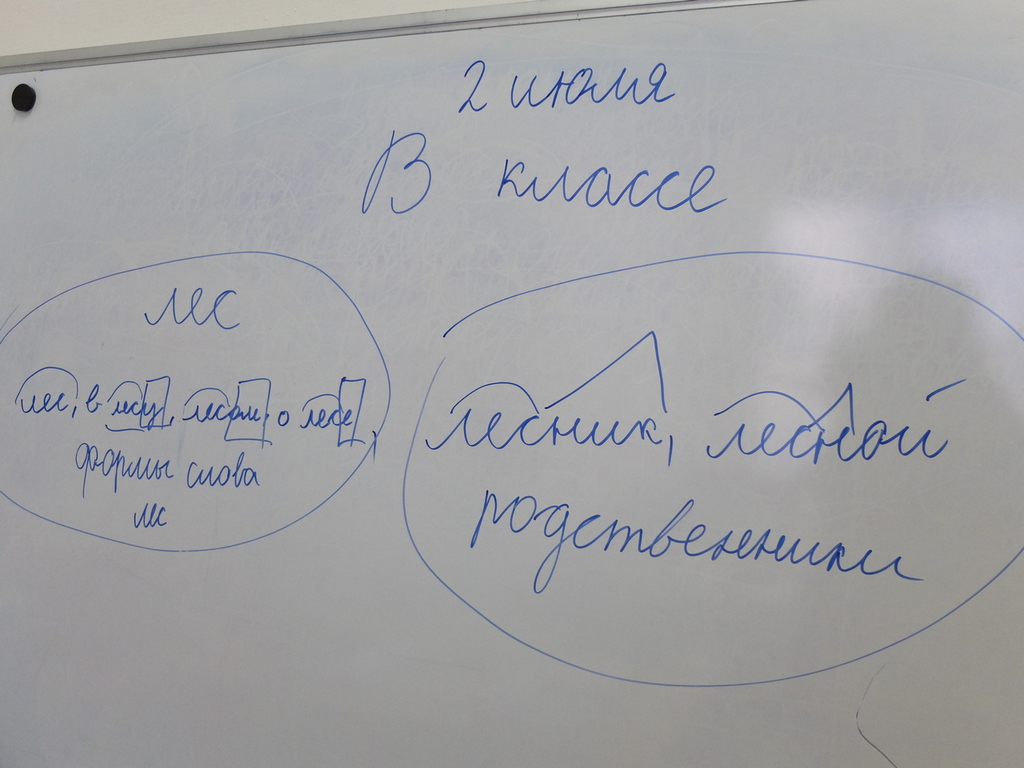 2 июля
В классе
лес
лес, в лесу, лесом, о лесе,
формы слова
лес
лесник, лесной
родственники